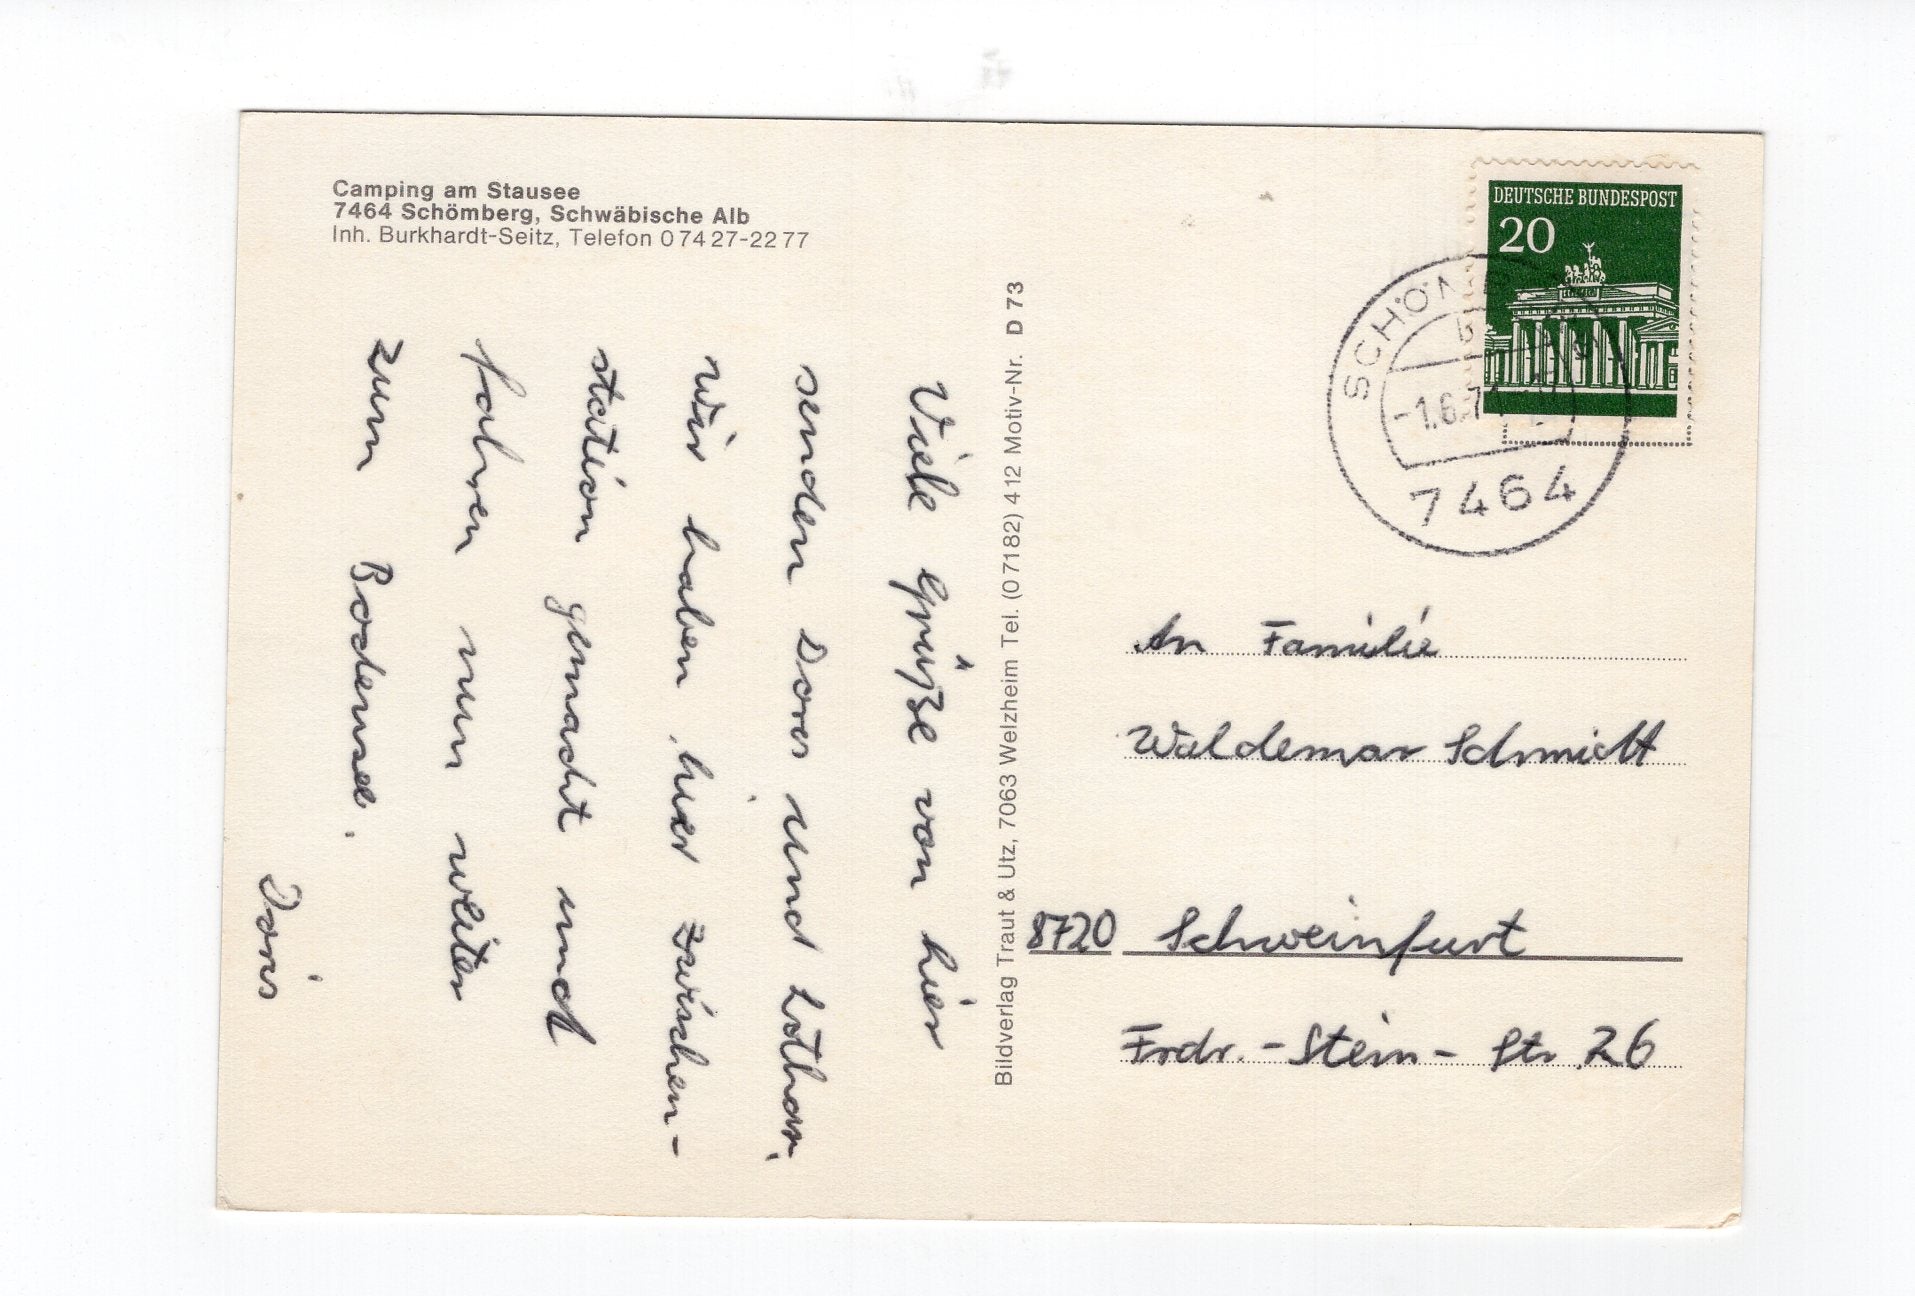 Camping am Stausee
7464 Schömberg, Schwäbische Alb
Inh. Burkhardt-Seitz, Telefon 0 74 27-22 77
Viele Grüße von hier
senden Doris und Lothar.
Wir haben hier Zwischen-
station gemacht und
fahren nun weiter
zum Bodensee.
Doris
Bildverlag Traut & Utz, 7063 Welzheim Tel. (0 71 82) 4 12 Motiv-Nr. D 73
DEUTSCHE BUNDESPOST
20
b
-1.6.7
7464
An Familie
Waldemar Schmidt
8720 Schweinfurt
Frdr.-Stein-Str. 26